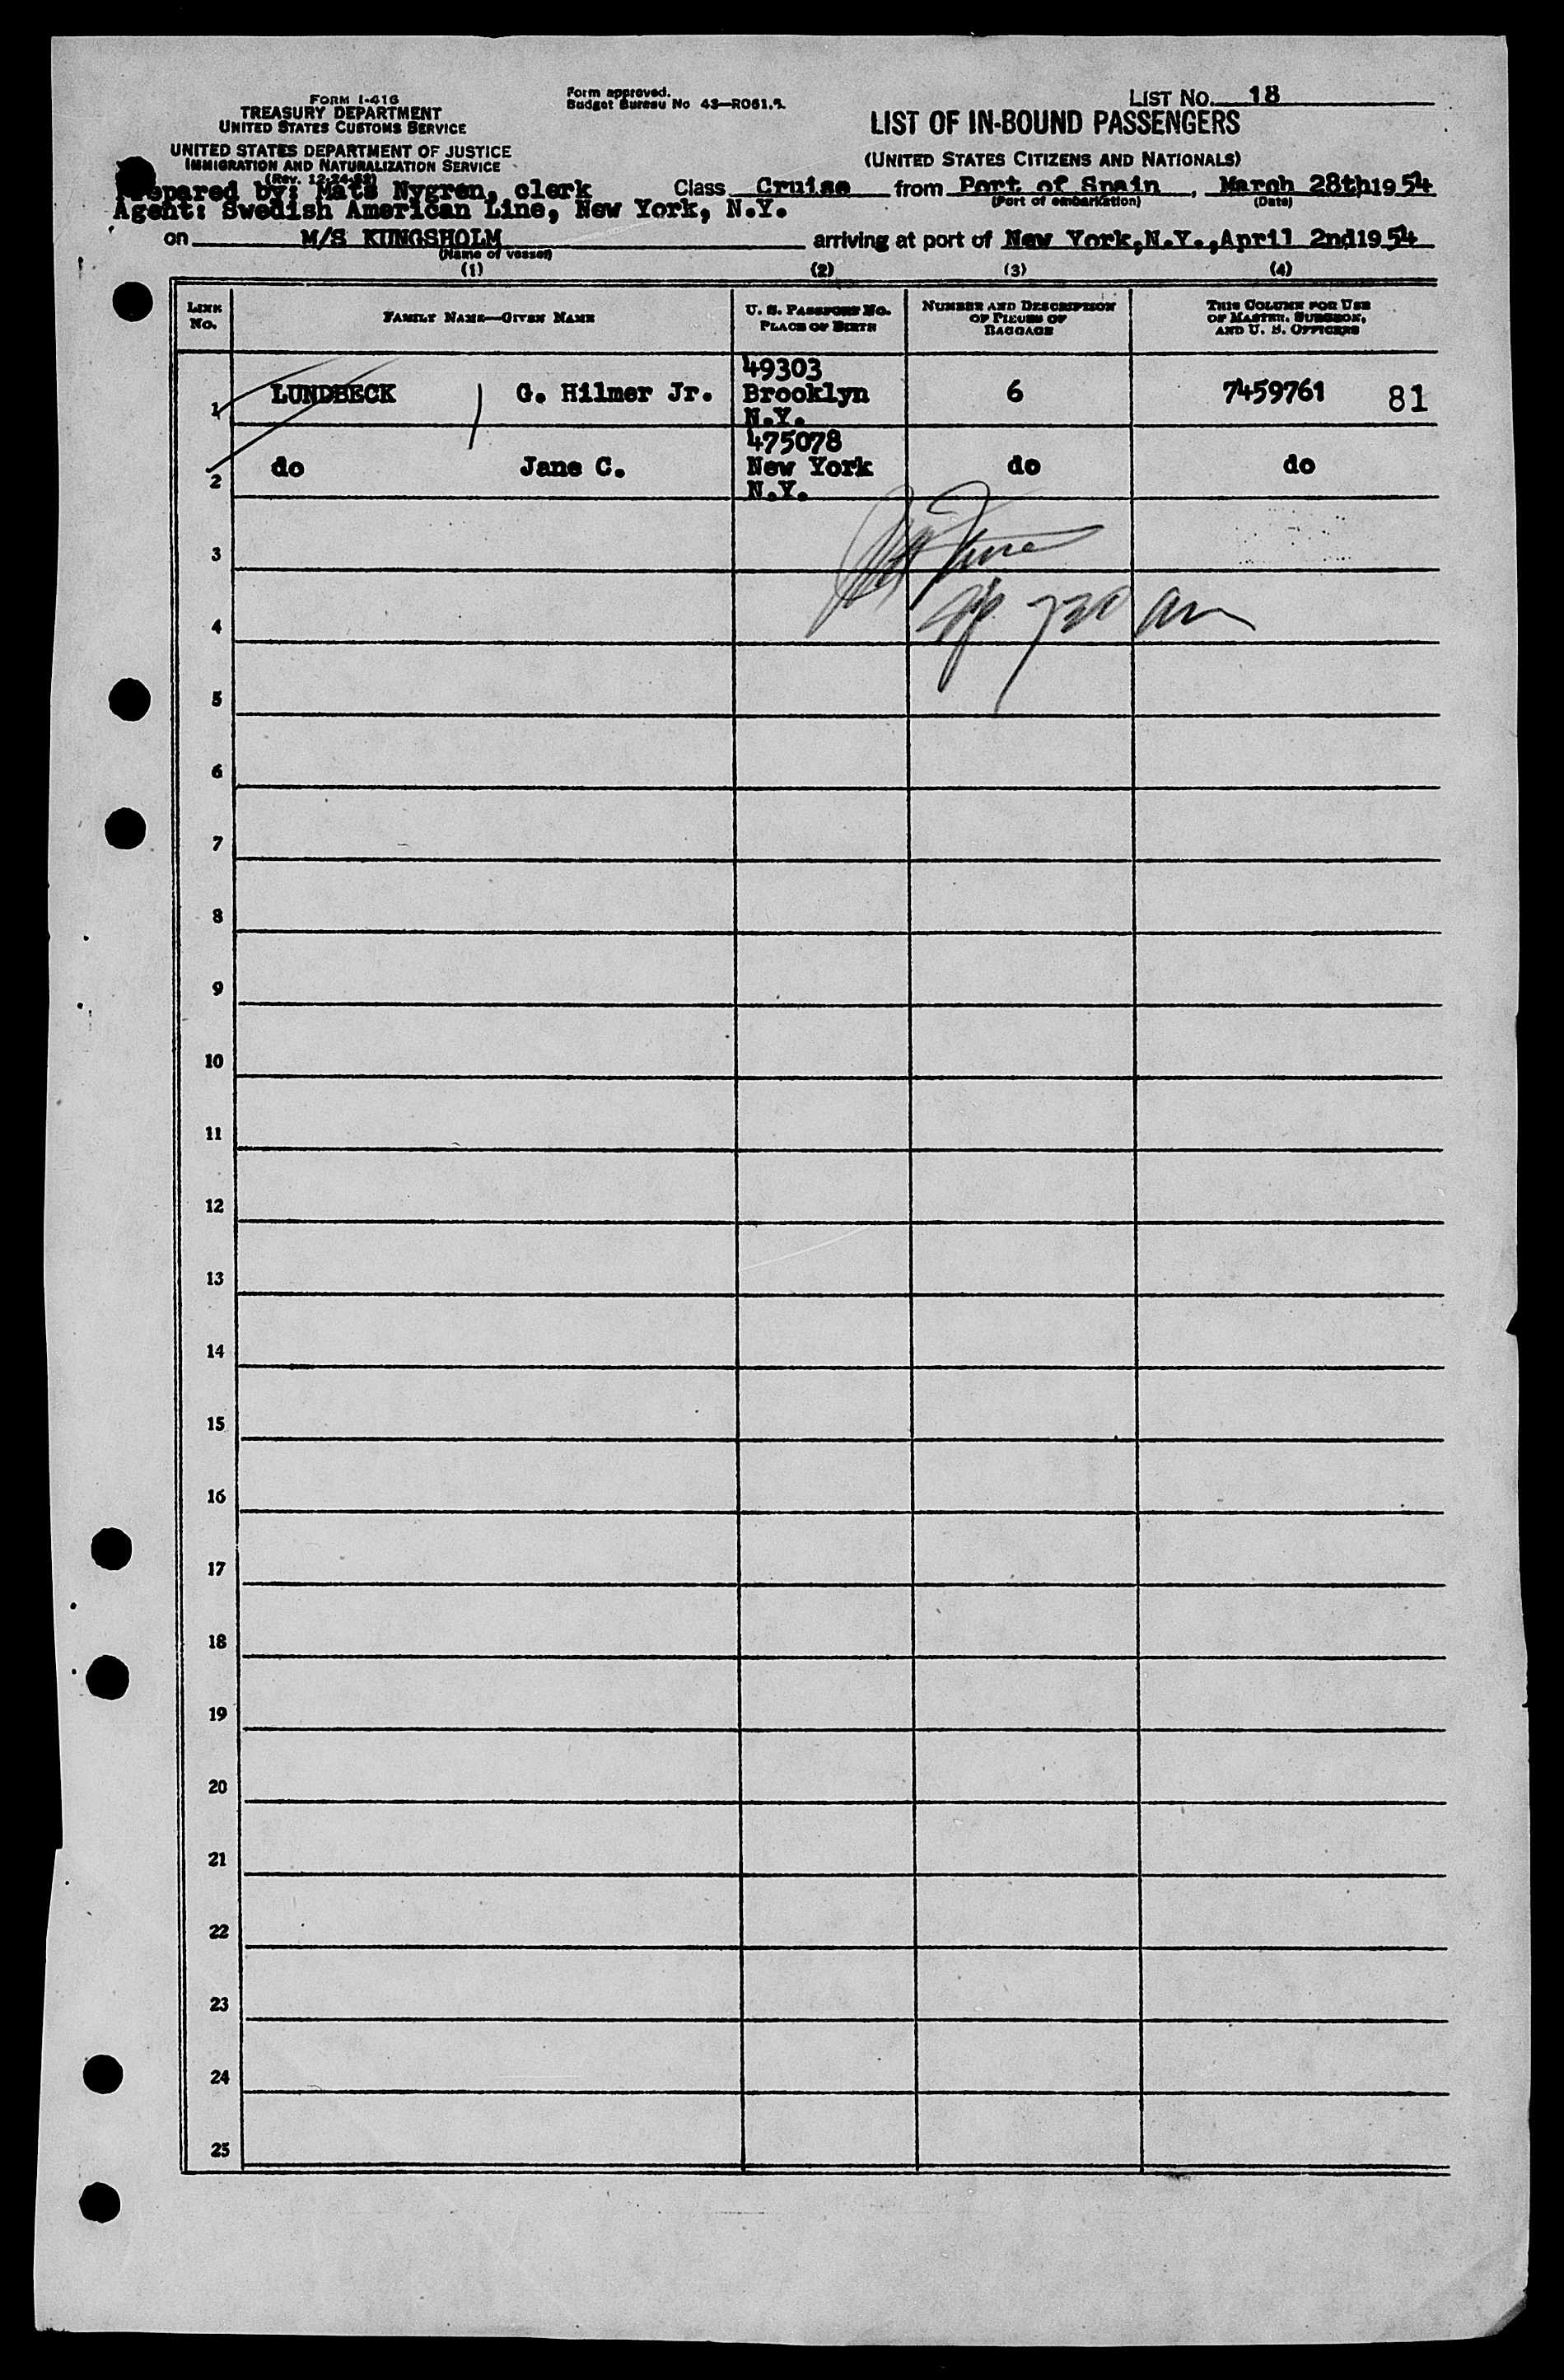 FORM I-416
TREASURY DEPARTMENT
UNITED STATES CUSTOMS SERVICE
UNITED STATES DEPARTMENT OF JUSTICE
IMMIGRATION AND NATURALIZATION SERVICE
(Rev. 12-24-52)
Form approved.
Budget Bureau No 43—R061.
LIST NO. 18
LIST OF IN-BOUND PASSENGERS
(UNITED STATES CITIZENS AND NATIONALS)
Prepared by: Mats Nygren, clerk Class Cruise from Port of Spain, March 28th 1954
(Port of embarkation) (Date)
Agent: Swedish American Line, New York, N.Y.
on M/S KUNGSHOLM arriving at port of New York, N.Y., April 2nd 1954
(Name of vessel)
(1) (2) (3) (4)
LINE NO. FAMILY NAME—GIVEN NAME U. S. PASSPORT NO. PLACE OF BIRTH NUMBER AND DESCRIPTION OF PIECES OF BAGGAGE THIS COLUMN FOR USE OF MASTER, SURGEON, AND U. S. OFFICERS
49303
1 LUNDBECK G. Hilmer Jr. Brooklyn 6 7459761 81
N.Y.
475078
2 do Jane C. New York do do
N.Y.
3
4
5
6
7
8
9
10
11
12
13
14
15
16
17
18
19
20
21
22
23
24
25